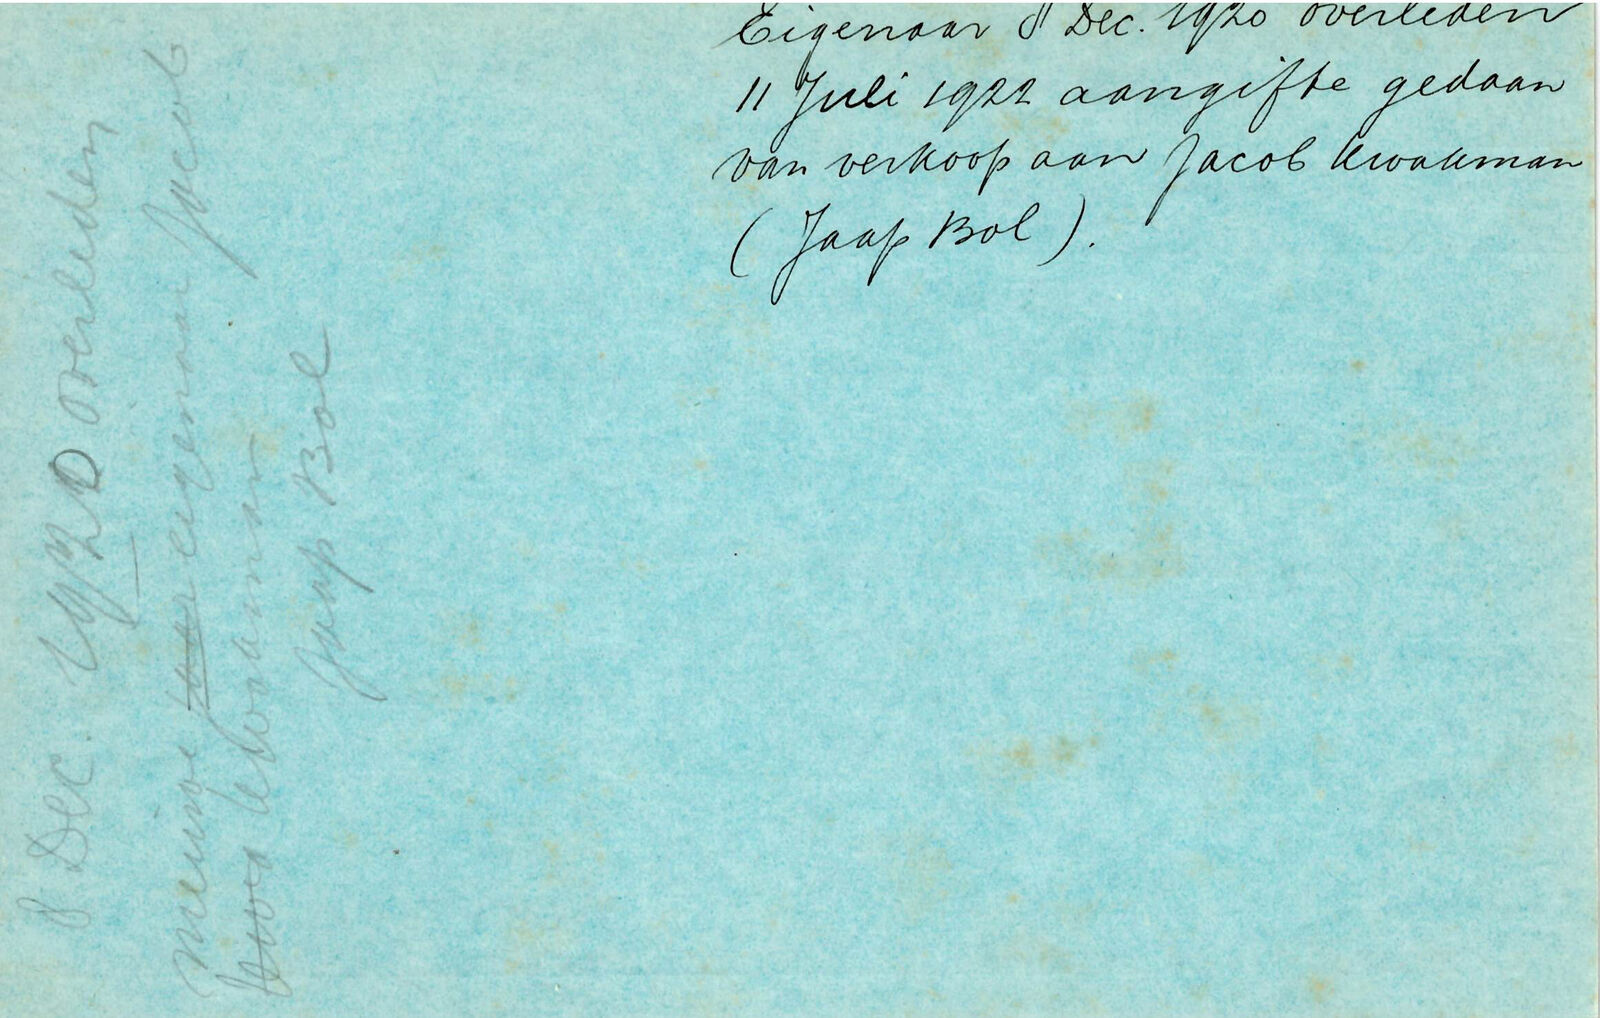 Eigenaar 8 Dec. 1920 overleden
11 Juli 1922 aangifte gedaan
van verkoop aan Jacob Kwakman
(Jaap Bol).
8 Dec. 1920 overleden
nieuwe eigenaar Jacob
Kwakman
Jaap Bol